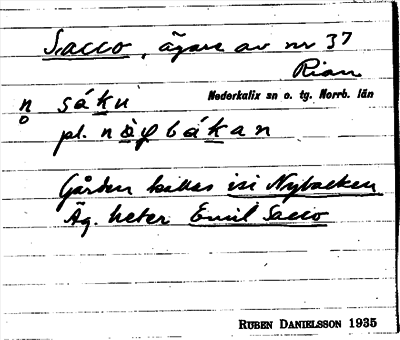 Sacco, ägare av nr 37
Rian
Nederkalix sn o. tg. Norrb. län
n sáku
o
pl. nòφbákan
Gården kallas isi Nybacken
Äg. heter Emil Sacco
RUBEN DANIELSSON 1935